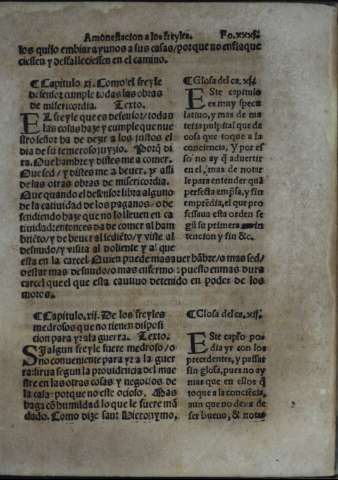 Amonestacion a los freyles. Fo.xxxj.
los quiso embiar ayunos a sus casas/porque no enflaque
ciessen y desfalleciessen en el camino.
¶Capitulo xi. Como el freyle
defensor cumple todas las obras
de misericordia. Texto.
EL freyle que es defensor/todas
las cosas haze y cumple que nue
stro señor ha de dezir a los justos el
dia de su temeroso juyzio. Porq̃ di
ra. Que hambre y distes me a comer.
Que sed/y distes me a beuer. ⁊c assi
de las otras obras de misericordia.
Que quando el defensor libra alguno
de la catiuidad de los paganos/o de
fendiendo haze que no lo lleuen en ca
tiuidad: entonces da de comer al ham
briẽto/y de beuer al sediẽto/y viste al
desnudo/y visita al doliente y al que
esta en la carcel. Quien puede mas auer hãbre/o mas sed/
o estar mas desnudo/o mas enfermo: puesto en mas dura
carcel que el que esta catiuo detenido en poder de los
moros.
¶Glosa del ca. xj.
ESte capitulo
es muy specu
latiuo, y mas de ma
teria pulpital que de
cosa que toque a la
conciencia, Y por es
so no ay q̃ aduertir
en el, mas de notar
le para entender quã
perfecta emp̃sa, y sin
emprẽdia, el que pro
fessaua esta orden se
gũ su primera in
tencion y fin &c.
¶Capitulo. xij. De los freyles
medrosos que no tienen disposi
cion para yr a la guerra. Texto.
SI algun freyle fuere medroso/o
no conueniente para yr a la guer
ra: sirua segun la prouidencia del mae
stre en las otras cosas y negocios de
la casa: porque no este ocioso. Mas
haga cõ humildad lo que le fuere mã
dado. Como dize sant Hieronymo,
¶Glosa del ca. xij.
ESte capi̇o po
dia yr con los
precedentes, y passar
sin glosa, pues no ay
mas que en ellos q̃
toque a la consciẽcia,
aun que no dexa de
ser bueno, & notar